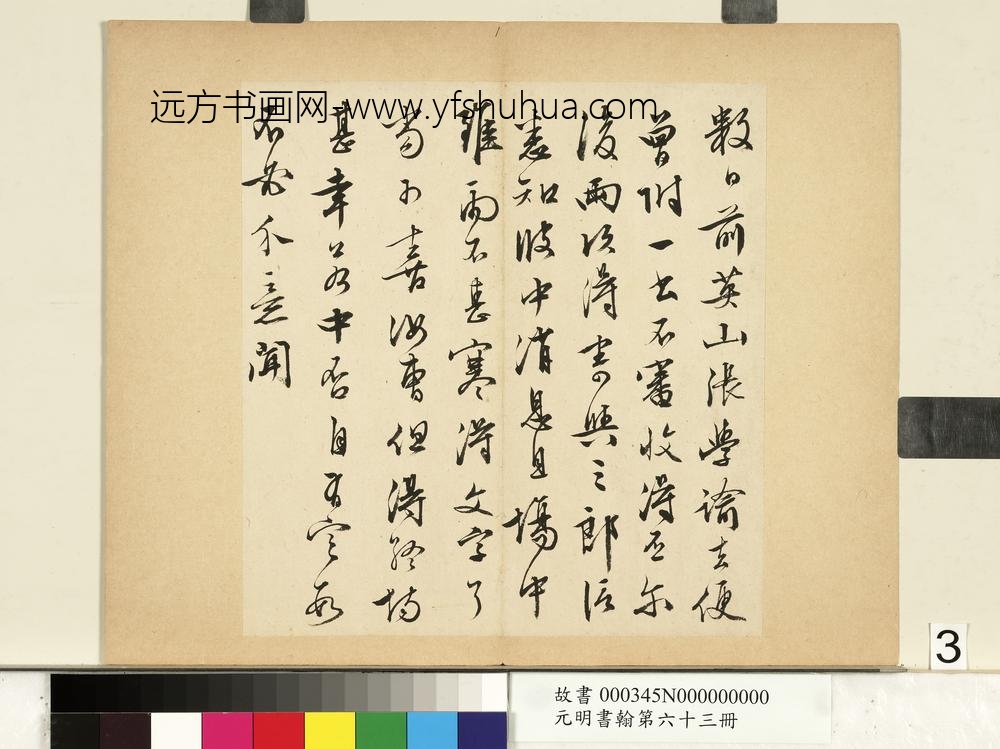 远方书画网-www.yfshuhua.com
數日前英山張學諭去便
曾附一書不審收得否尔
後兩次得書與三郎信
悉知彼中消息且場中
雖雨不甚寒得文字了
當可喜汝曹但得終場
甚幸公名中否自有定數
不必介意聞
3
故書 000345N000000000
元明書翰第六十三冊